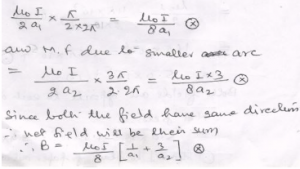 μ₀I / 2a₁ × π / 2×2π = μ₀I / 8a₁ ⊗
and M.f due to smaller arc
= μ₀I / 2a₂ × 3π / 2·2π = μ₀I×3 / 8a₂ ⊗
Since both the field have same direction
∴ net field will be their sum
∴ B = μ₀I / 8 [1/a₁ + 3/a₂] ⊗